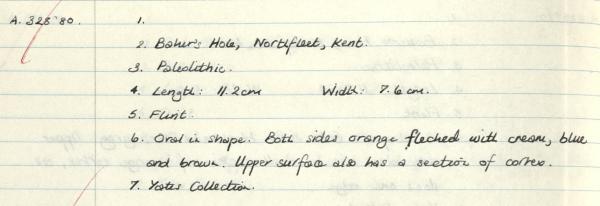 A. 328'80. 1.
2. Baker's Hole, Northfleet, Kent.
3. Paleolithic.
4. Length: 11.2cm Width: 7.6cm.
5. Flint.
6. Oval in shape. Both sides orange flecked with cream, blue
and brown. Upper surface also has a section of cortex.
7. Yates Collection.